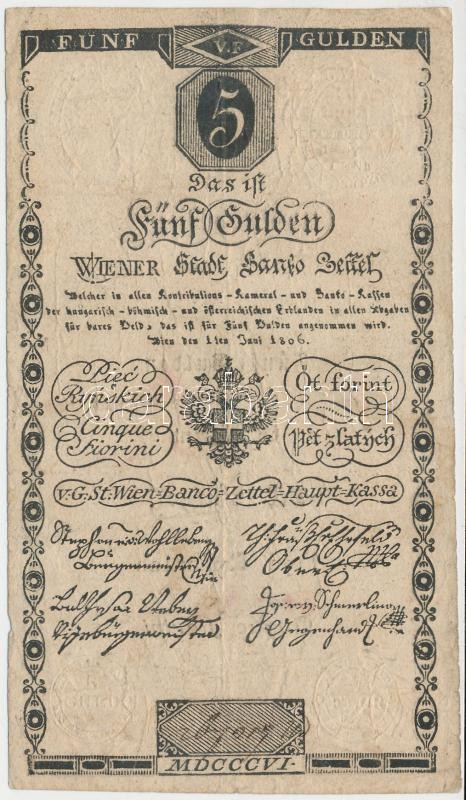 FÜNF V.F. GULDEN
5
Das ist
Fünf Gulden
WIENER Stadt Banko Zettel
Welcher in allen Kontributions-Kameral-und Banko-Kassen
der hungarisch-böhmisch-und österreichischen Erblanden in allen Abgaben
für bares Geld, das ist für Fünf Gulden angenommen wird.
Wien den 1ten Juni 1806.
Pięć Ryńskich
Öt forint
Cinque Fiorini
Pět zlatych
v. G: St: Wien=Banco=Zettel=Haupt=Kassa
Stephan v. Wohlleben
Bürgermeister
Ober
Vizebürgermeister
Schmerling
Gegenhand
MDCCCVI